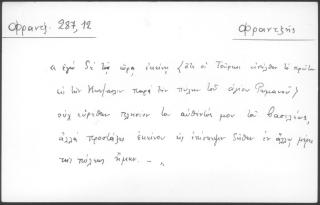 Φραντζ. 287,12
Φραντζῆς
« ἐγὼ δὲ τῇ ὥρᾳ ἐκείνῃ (ὅτι οἱ Τοῦρκοι εἰσῆλθον τὸ πρῶτον
εἰς τὴν παρὰ τὴν πύλην τοῦ ἁγίου Ῥωμανοῦ)
οὐχ εὑρέθην πλησίον τοῦ αὐθέντου μου τοῦ βασιλέως,
ἀλλὰ προστάξει ἐκείνου εἰς ἐπίσκεψιν δῆθεν ἐν ἄλλῳ μέρει
τῆς πόλεως ἤμην. –